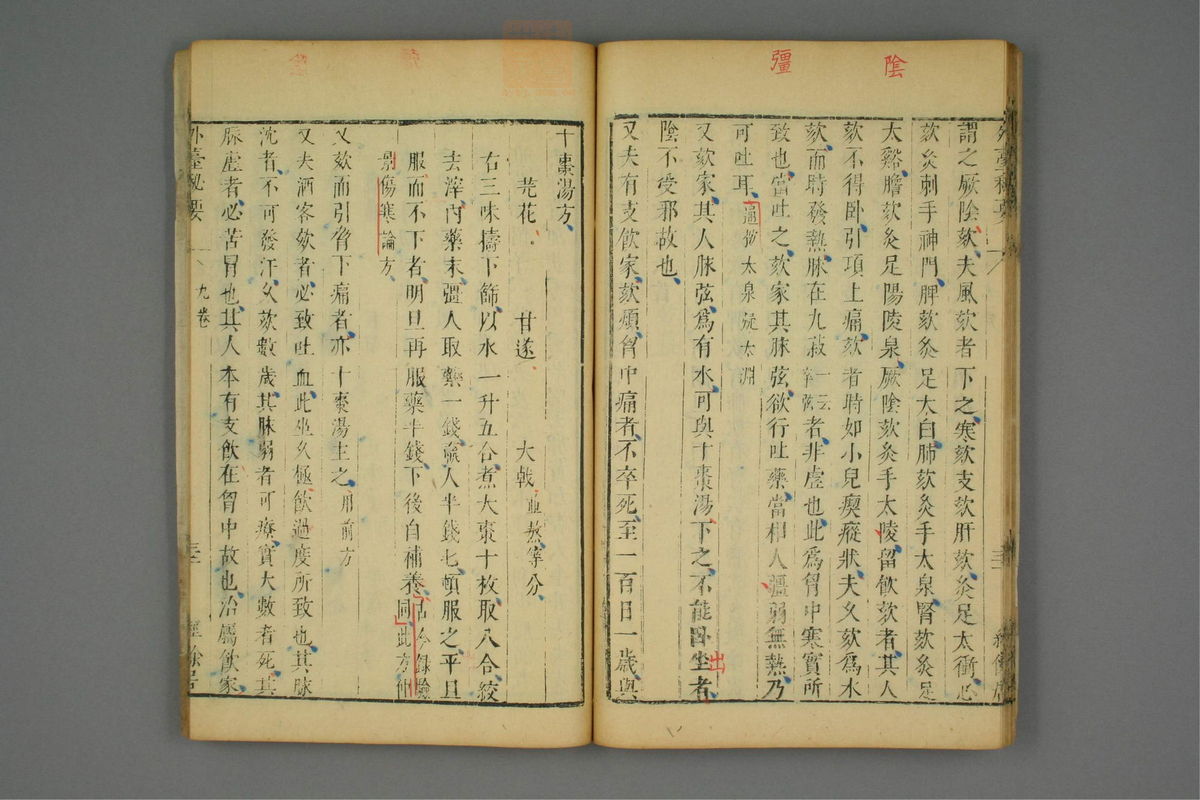 陰
彊
謂之厥陰欬夫風欬者下之寒欬支欬肝欬灸足太衝心
欬灸刺手神門脾欬灸足太白肺欬灸手太泉腎欬灸足
太谿膽欬灸足陽陵泉厥陰欬灸手太陵留飲欬者其人
欬不得臥引項上痛欬者時如小兒瘈瘲狀夫久欬為水
欬而時發熱脉在九菽一云卒弦者非虛也此爲胷中寒實所
致也當吐之欬家其脉弦欲行吐藥當相人彊弱無熱乃
可吐耳太泉疑太淵
又欬家其人脉弦爲有水可與十棗湯下之不能臥坐者
出
陰不受邪故也
又夫有支飲家欬煩胷中痛者不卒死至一百日一歲與
十棗湯方
芫花 甘遂 大戟並熬等分
右三味擣下篩以水一升五合煮大棗十枚取八合絞
去滓內藥末彊人取藥一錢羸人半錢匕頓服之平旦
服而不下者明旦再服藥半錢下後自補養古今錄驗同此方仲
景傷寒論方
又欬而引脅下痛者亦十棗湯主之用前方
又夫酒客欬者必致吐血此坐久極飲過度所致也其脉
沈者不可發汗久欬數歲其脉弱者可療實大數者死其
脉虛者必苦冒也其人本有支飲在胷中故也治屬飲家
外臺秘要
九卷
三
經餘居